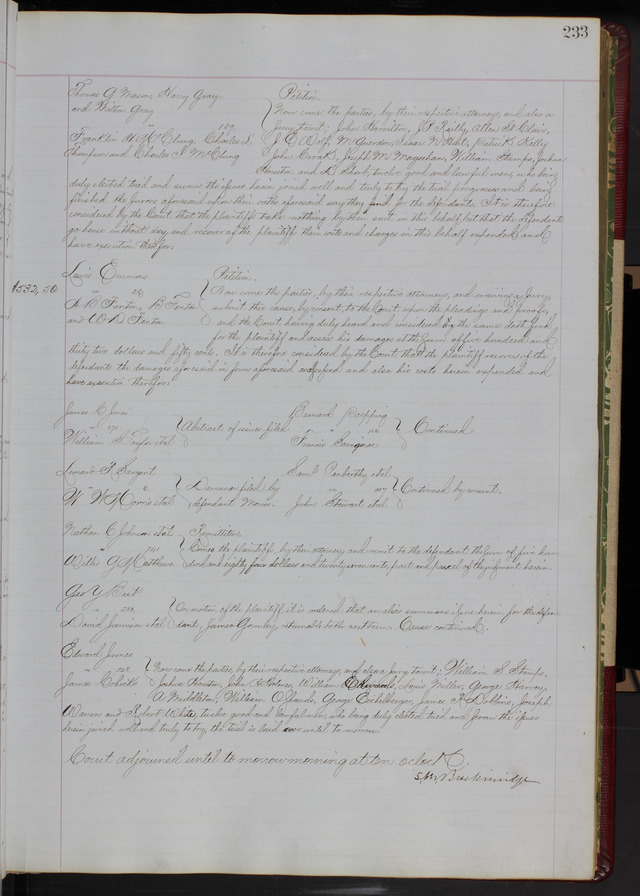 233
Thomas G Mason, Harry Gray
and Milton Gray
Franklin H McClung, Charles S.
Thompson and Charles J McClung
Petition.
Now come the parties, by their respective attorneys, and also a
Jury, to wit; John Hamilton, J A Reilly, Allen St Clair,
J E Wolf, M Guerdon, Isaac W Hart, Patrick Kelly
John Crook, Joseph M Magehan, William Stamps, Joshua
Houston and D Short, twelve good and lawful men, who being
duly elected tried and sworn the issue herein joined well and truly to try, the trial progresses and being
finished the Jurors aforesaid upon their oaths aforesaid say they find for the defendants. It is therefore
considered by the Court that the plaintiffs take nothing by their suit in this behalf but that the defendants
go hence without day and recover of the plaintiffs their costs and charges in this behalf expended and
have execution therefor.
$532,50
Lewis Emmons
A B Fenton, B Fenton
and W D Fenton
Petition.
Now come the parties, by their respective attorneys, and waiving a Jury,
submit this cause, by consent, to the Court upon the pleadings and proofs,
and the Court having duly heard and considered the same doth find
for the plaintiff and assess his damages at the sum of five hundred and
thirty two dollars and fifty cents. It is therefore considered by the Court that the plaintiff recover of the
defendants the damages aforesaid in form aforesaid assessed and also his costs herein expended and
have execution therefor.
James C Jones
William H Taylor et al
Abstract of issues filed
Bernard Poepping
Francis Sarignac
Continued
Leonard R Sargent
W W Morris et al
Demurrer filed by
defendant Morris.
Saml Cankerthy et al
John Stewart et al
Continued by consent.
Nathan C Johnson et al
Willis G Matthews
Remittitur.
Comes the plaintiff, by their attorney, and remit to the defendant the sum of five hun
dred and eighty four dollars and twenty seven cents, part and parcel of the judgment herein.
Geo Y Bast
David Jamison et al
On motion of the plaintiff, it is ordered that an alias summons issue herein for the defen
dant, James Gormley, returnable to the next term. Cause continued.
Edward James
James
Now come the parties, by their respective attorneys, and also a Jury, to wit; William S Stamps,
Joshua Houston, John R Holmes, William Edwards, Louis Miller, George
A Middleton, William Orlando, George Eichelberger, James F Dobbins, Joseph
Weaver and Robert White, twelve good and lawful men, who being duly elected tried and sworn the issues
herein joined well and truly to try, the trial is laid over until to morrow.
Court adjourned until to morrow morning at ten o'clock.
S, M, Breckinridge